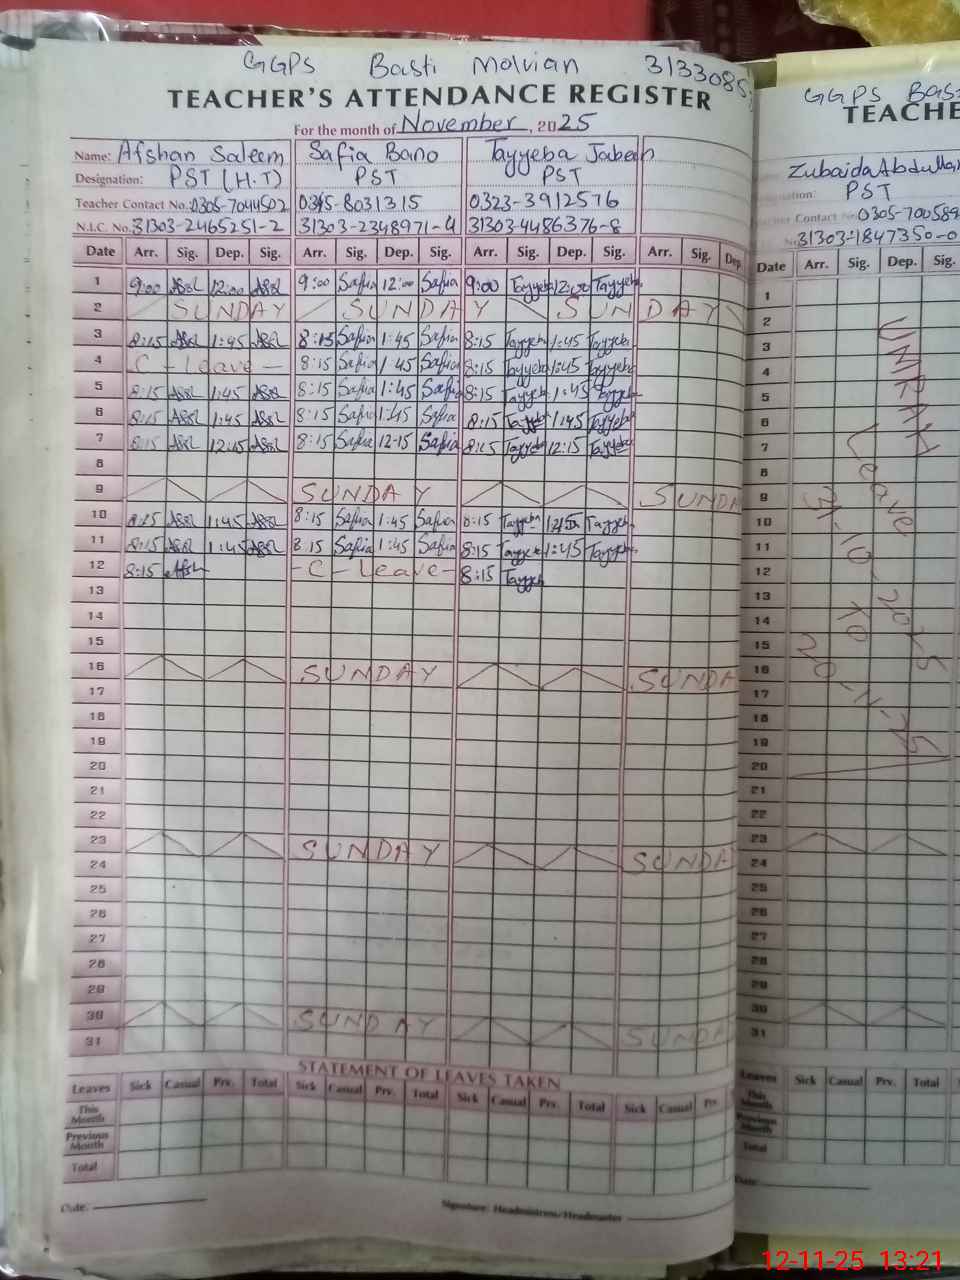 GGPS Basti Molvian 3133085
TEACHER'S ATTENDANCE REGISTER
For the month of November, 2025
Name: Afshan Saleem Safia Bano Tayyeba Jabeen
Designation: PST (H.T) PST PST
Teacher Contact No. 0305-7044502 0345-8031315 0323-3912576
N.I.C. No. 31303-2465251-2 31303-2348971-4 31303-4486376-8
Date Arr. Sig. Dep. Sig. Arr. Sig. Dep. Sig. Arr. Sig. Dep. Sig. Arr. Sig. Dep.
1 9:00 12:00 9:00 Safia 12:00 Safia 9:00 Tayyeba 12:00 Tayyeba
2 SUNDAY SUNDAY SUNDAY
3 8:15 1:45 8:15 Safia 1:45 Safia 8:15 Tayyeba 1:45 Tayyeba
4 C - Leave - 8:15 Safia 1:45 Safia 8:15 Tayyeba 1:45 Tayyeba
5 8:15 1:45 8:15 Safia 1:45 Safia 8:15 Tayyeba 1:45 Tayyeba
6 8:15 1:45 8:15 Safia 1:45 Safia 8:15 Tayyeba 1:45 Tayyeba
7 8:15 12:15 8:15 Safia 12:15 Safia 8:15 Tayyeba 12:15 Tayyeba
8
9 SUNDAY SUNDA
10 8:15 1:45 8:15 Safia 1:45 Safia 8:15 Tayyeba Tayyeba
11 8:15 1:45 8:15 Safia 1:45 Safia 8:15 Tayyeba 1:45 Tayyeba
12 8:15 Afsh - C - Leave - 8:15 Tayyeb
13
14
15
16 SUNDAY SUNDA
17
18
19
20
21
22
23 SUNDAY SUNDA
24
25
26
27
28
29
30 SUNDAY SUNDA
31
STATEMENT OF LEAVES TAKEN
Leaves Sick Casual Prv. Total Sick Casual Prv. Total Sick Casual Prv. Total Sick Casual Prv.
This Month
Previous Month
Total
Date: Signature: Headmistress/Headmaster
GGPS Bas
TEACHE
Zubaida Abdullah
PST
0305-700589
31303-1847350-0
Date Arr. Sig. Dep. Sig.
1
2
3
4
5
6
7
8
9
10
11
12
13
14
15
16
17
18
19
20
21
22
23
24
25
26
27
28
29
30
31
UMRAH
Leave
31-10-2025
To
20-11-25
Leaves Sick Casual Prv. Total
This Month
Previous Month
Total
Date:
12-11-25 13:21